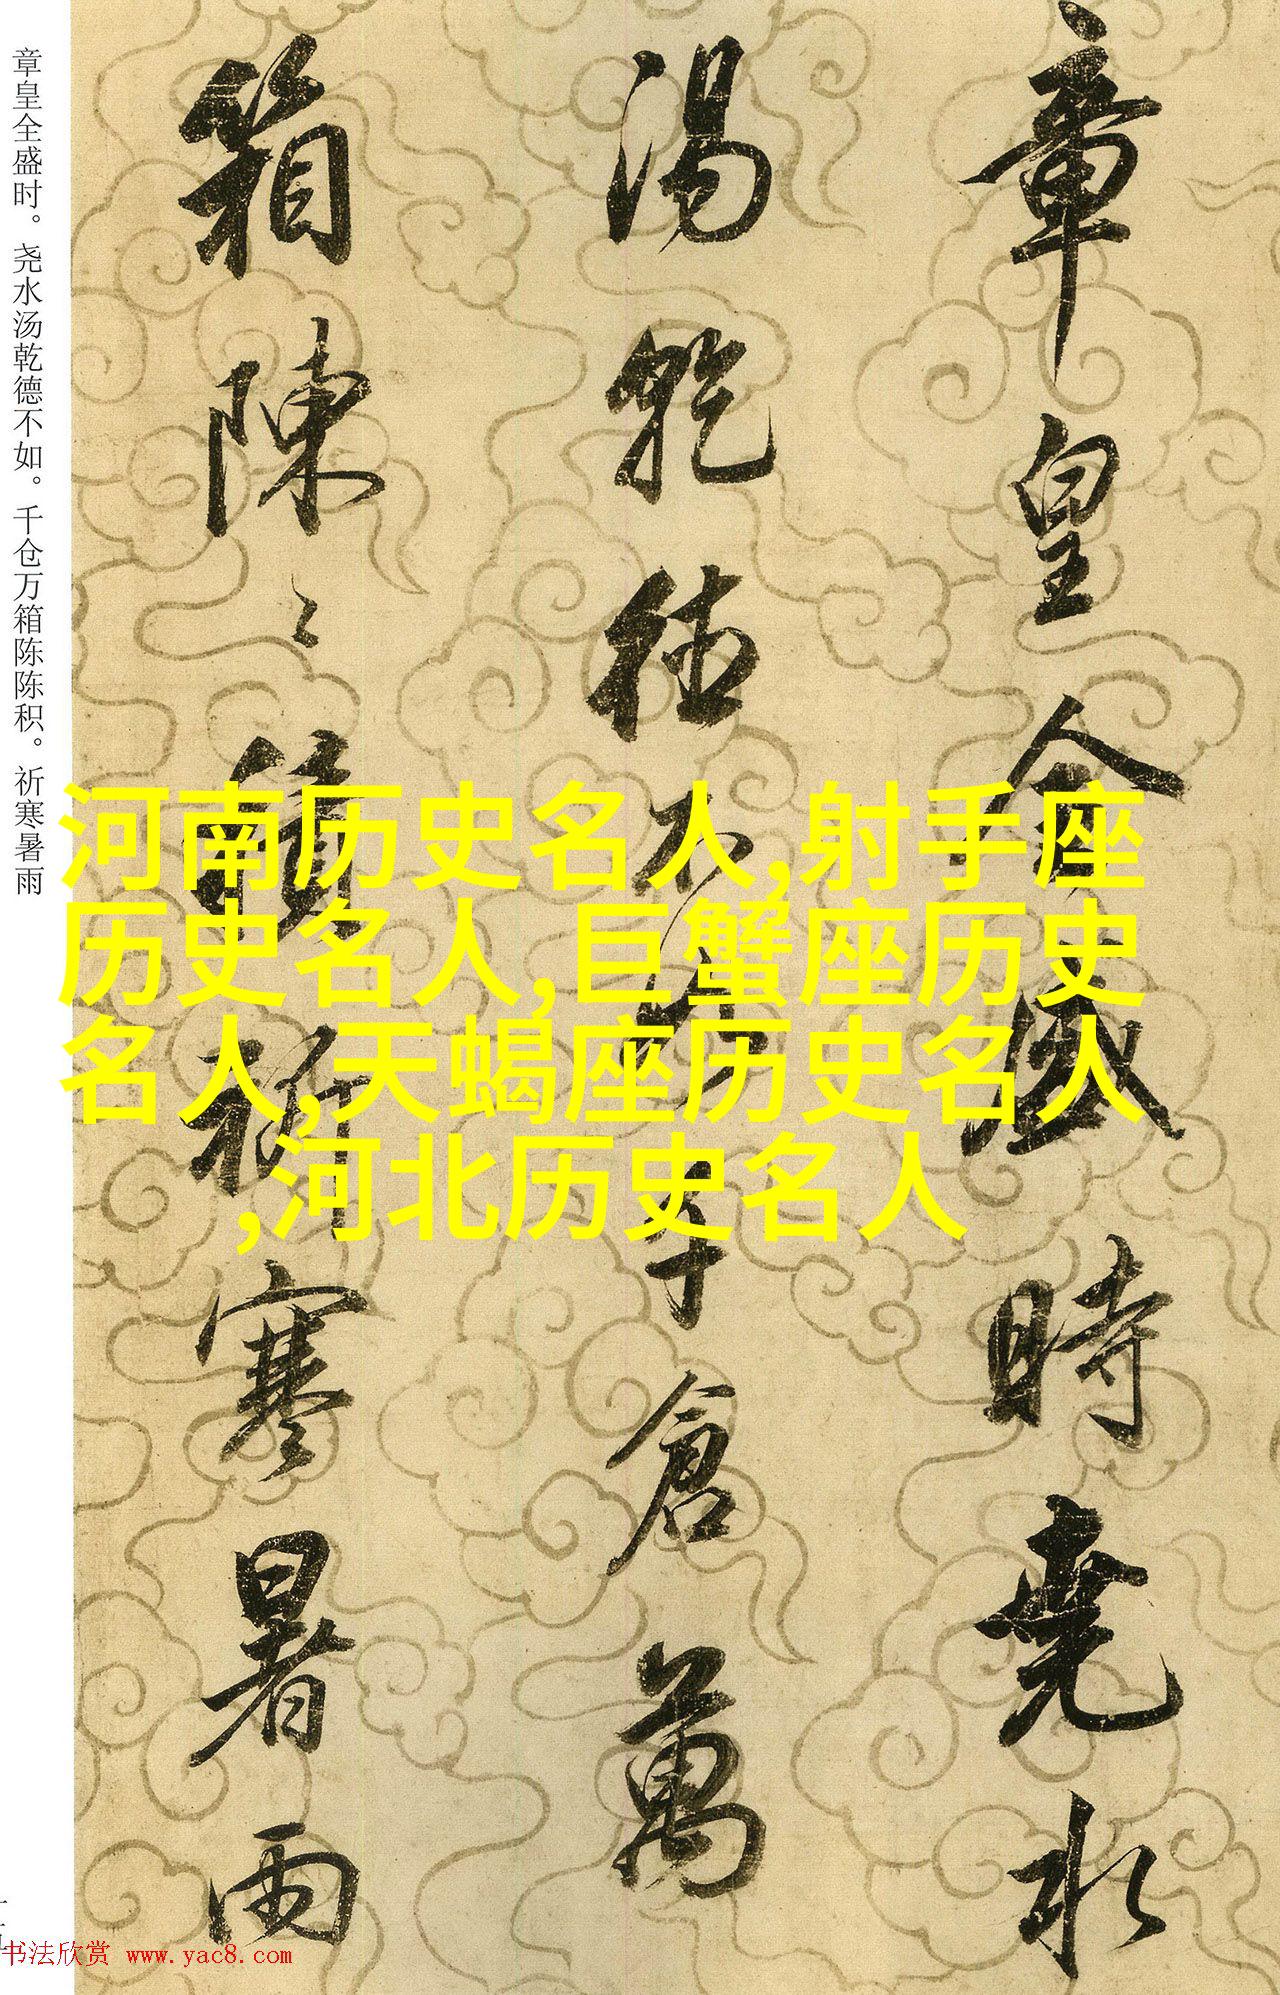 章皇全盛時堯水
湯乾德不如千倉萬
箱陳〻積祈寒暑雨
章皇全盛时。尧水汤乾德不如。千仓万箱陈陈积。祈寒暑雨
河南历史名人,射手座
历史名人,巨蟹座历史
名人,天蝎座历史名人
,河北历史名人
书法欣赏 www.yac8.com